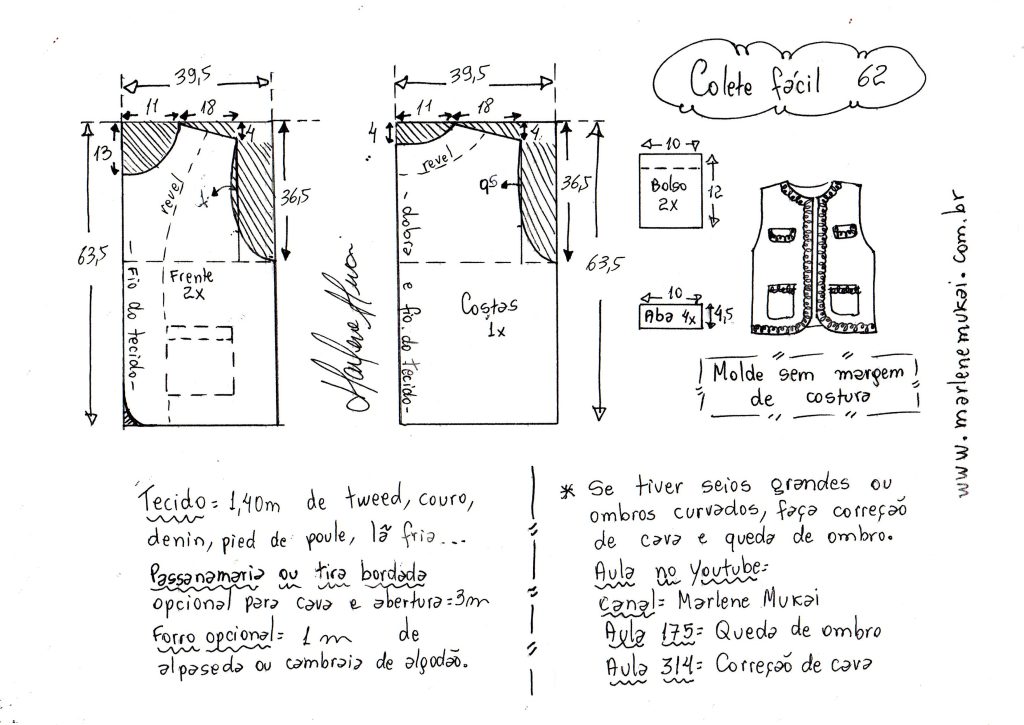 Colete fácil 62
39,5
11
18
4
13
36,5
63,5
revel
1
Frente
2x
- Fio do tecido -
39,5
11
18
4
4
revel
36,5
63,5
- dobra e fio do tecido -
Costas
1x
10
Bolso
2x
12
10
Aba 4x
4,5
Molde sem margem
de costura
www.marlenemukai.com.br
Tecido = 1,40m de tweed, couro,
denin, pied de poule, lã fria...
Passanamaria ou tira bordada
opcional para cava e abertura = 3m
Forro opcional = 1 m de
alpaseda ou cambraia de algodão.
* Se tiver seios grandes ou
ombros curvados, faça correção
de cava e queda de ombro.
Aula no Youtube =
canal = Marlene Mukai
Aula 175 = Queda de ombro
Aula 314 = Correção de cava